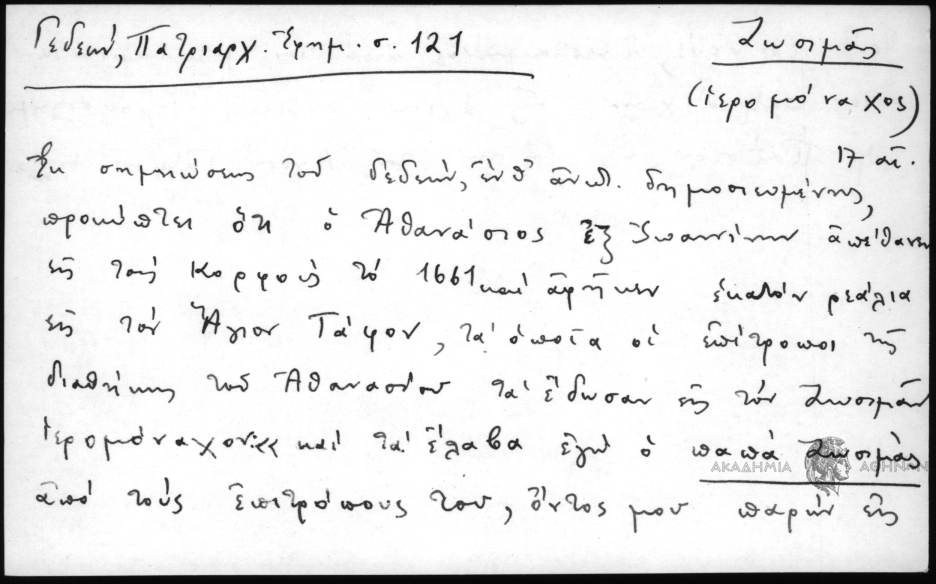 Γεδεών, Πατριαρχ. Ἐφημ. σ. 121
Ζωσιμᾶς
(ἱερομόναχος)
17 αἰ.
Ἐκ σημειώσεως τοῦ Γεδεών, ἔνθ' ἀνωτ. δημοσιευμένης,
προκύπτει ὅτι ὁ Ἀθανάσιος ἐξ Ἰωαννίνων ἀπέθανεν
εἰς τοὺς Κορφοὺς τὸ 1661 καὶ ἀφῆκεν ἑκατὸν ρεάλια
εἰς τὸν Ἅγιον Τάφον, τὰ ὁποῖα οἱ ἐπίτροποι τῆς
διαθήκης τοῦ Ἀθανασίου τὰ ἔδωσαν εἰς τὸν Ζωσιμᾶν
ἱερομόναχον «καὶ τὰ ἔλαβα ἐγὼ ὁ παπὰ Ζωσιμὰς
ΑΚΑΔΗΜΙΑ ΑΘΗΝΩΝ
ἀπὸ τοὺς ἐπιτρόπους του, ὄντος μου παρὼν εἰς